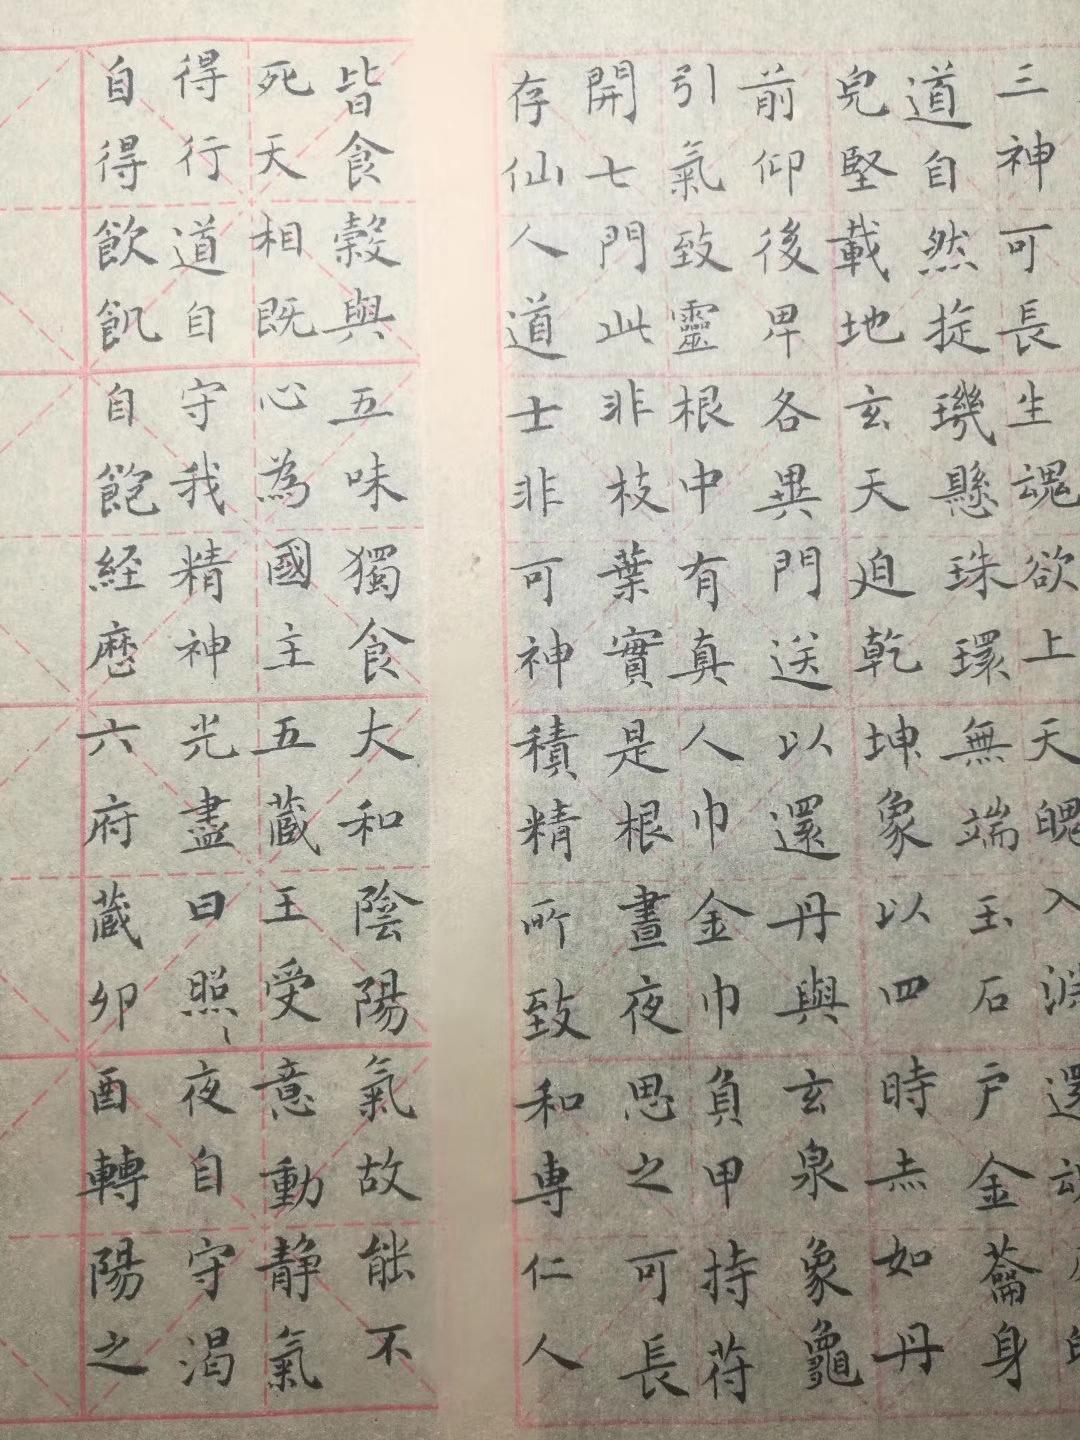 三神可長生魂欲上天魄入淵還魂
道自然旋璣懸珠環無端玉石戶金籥身
完堅載地玄天迫乾坤象以四時赤如丹
前仰後卑各異門送以還丹與玄泉象龜
引氣致靈根中有真人巾金巾負甲持符
開七門此非枝葉實是根晝夜思之可長
存仙人道士非可神積精所致和專仁人
皆食穀與五味獨食大和陰陽氣故能不
死天相既心為國主五藏王受意動静氣
得行道自守我精神光盡日照夜自守渴
自得飲飢自飽経歷六府藏卯酉轉陽之